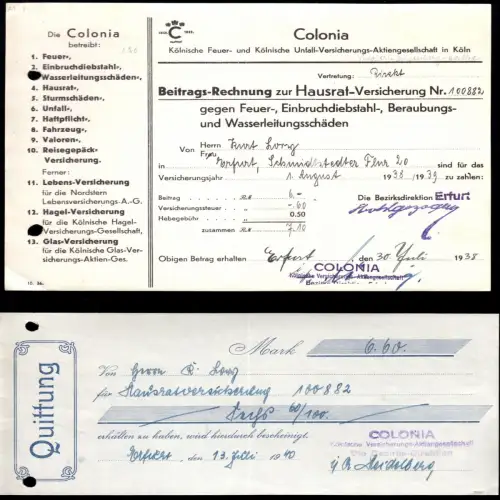 Die Colonia
betreibt:
1. Feuer-,
2. Einbruchdiebstahl-,
3. Wasserleitungsschäden-,
4. Hausrat-,
5. Sturmschäden-,
6. Unfall-,
7. Haftpflicht-,
8. Fahrzeug-,
9. Valoren-,
10. Reisegepäck-
Versicherung.
Ferner:
11. Lebens-Versicherung
für die Nordstern
Lebensversicherungs-A.-G.
12. Hagel-Versicherung
für die Kölnische Hagel-
Versicherungs-Gesellschaft,
13. Glas-Versicherung
für die Kölnische Glas-Ver-
sicherungs-Aktien-Ges.
C
Colonia
Kölnische Feuer- und Kölnische Unfall-Versicherungs-Aktiengesellschaft in Köln
Vertretung: Direkt
Beitrags-Rechnung zur Hausrat-Versicherung Nr. 100882
gegen Feuer-, Einbruchdiebstahl-, Beraubungs-
und Wasserleitungsschäden
Von Herrn Kurt Loog
Frau
in Erfurt, Schmidtstedter Flur 20 sind für das
Versicherungsjahr 1. August 1938/1939 zu zahlen:
Beitrag RM 6.-
Versicherungssteuer -.60
Hebegebühr 0.50
zusammen RM 7.10
Die Bezirksdirektion Erfurt
Obigen Betrag erhalten Erfurt, den 30. Juli 1938
COLONIA
Kölnische Versicherungs-Aktiengesellschaft
Quittung
Mark 6.60.
Von Herrn K. Loog
für Hausratversicherung 100882
Sechs 60/100.
erhalten zu haben, wird hierdurch bescheinigt.
Erfurt, den 13. Juli 1940
COLONIA
Kölnische Versicherungs-Aktiengesellschaft
Heidelberg